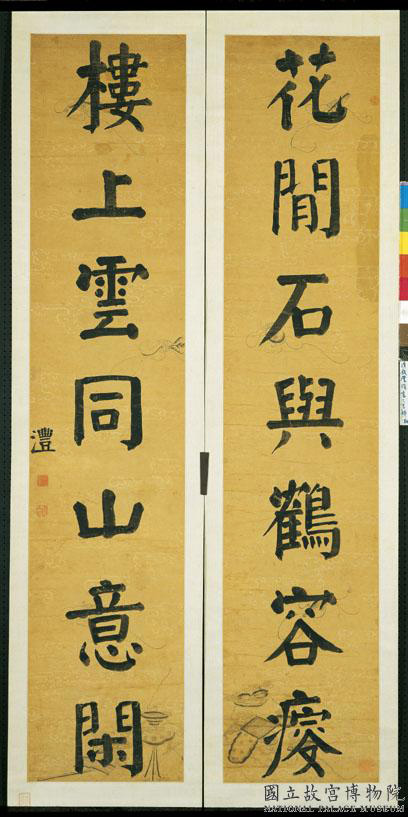 花間石與鶴容瘦
樓上雲同山意閑
灃
國立故宮博物院
NATIONAL PALACE MUSEUM